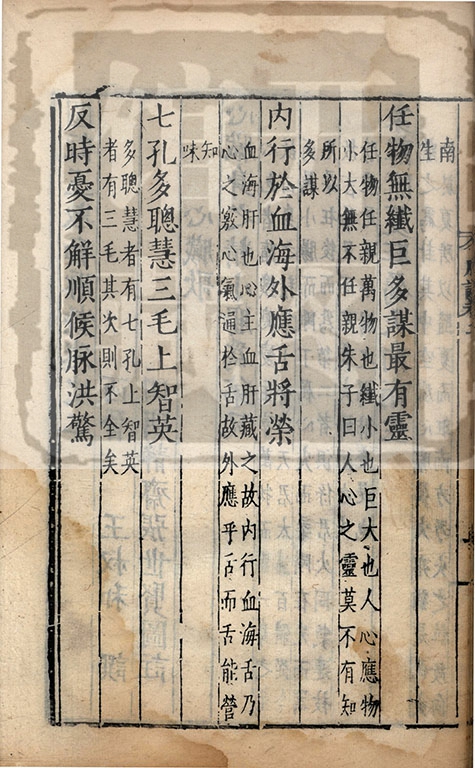 南
生
任物無纖巨多謀最有靈
任物任親萬物也纖小也巨大也人心應物
小大無不任親朱子曰人心之靈莫不有知
所以
多謀
内行於血海外應舌將榮
血海肝也心主血肝藏之故内行血海舌乃
心之竅心氣通於舌故外應乎舌而舌能營
知
味
七孔多聰慧三毛上智英
多聰慧者有七孔上智英
者有三毛其次則不全矣
反時憂不解順候脉洪驚